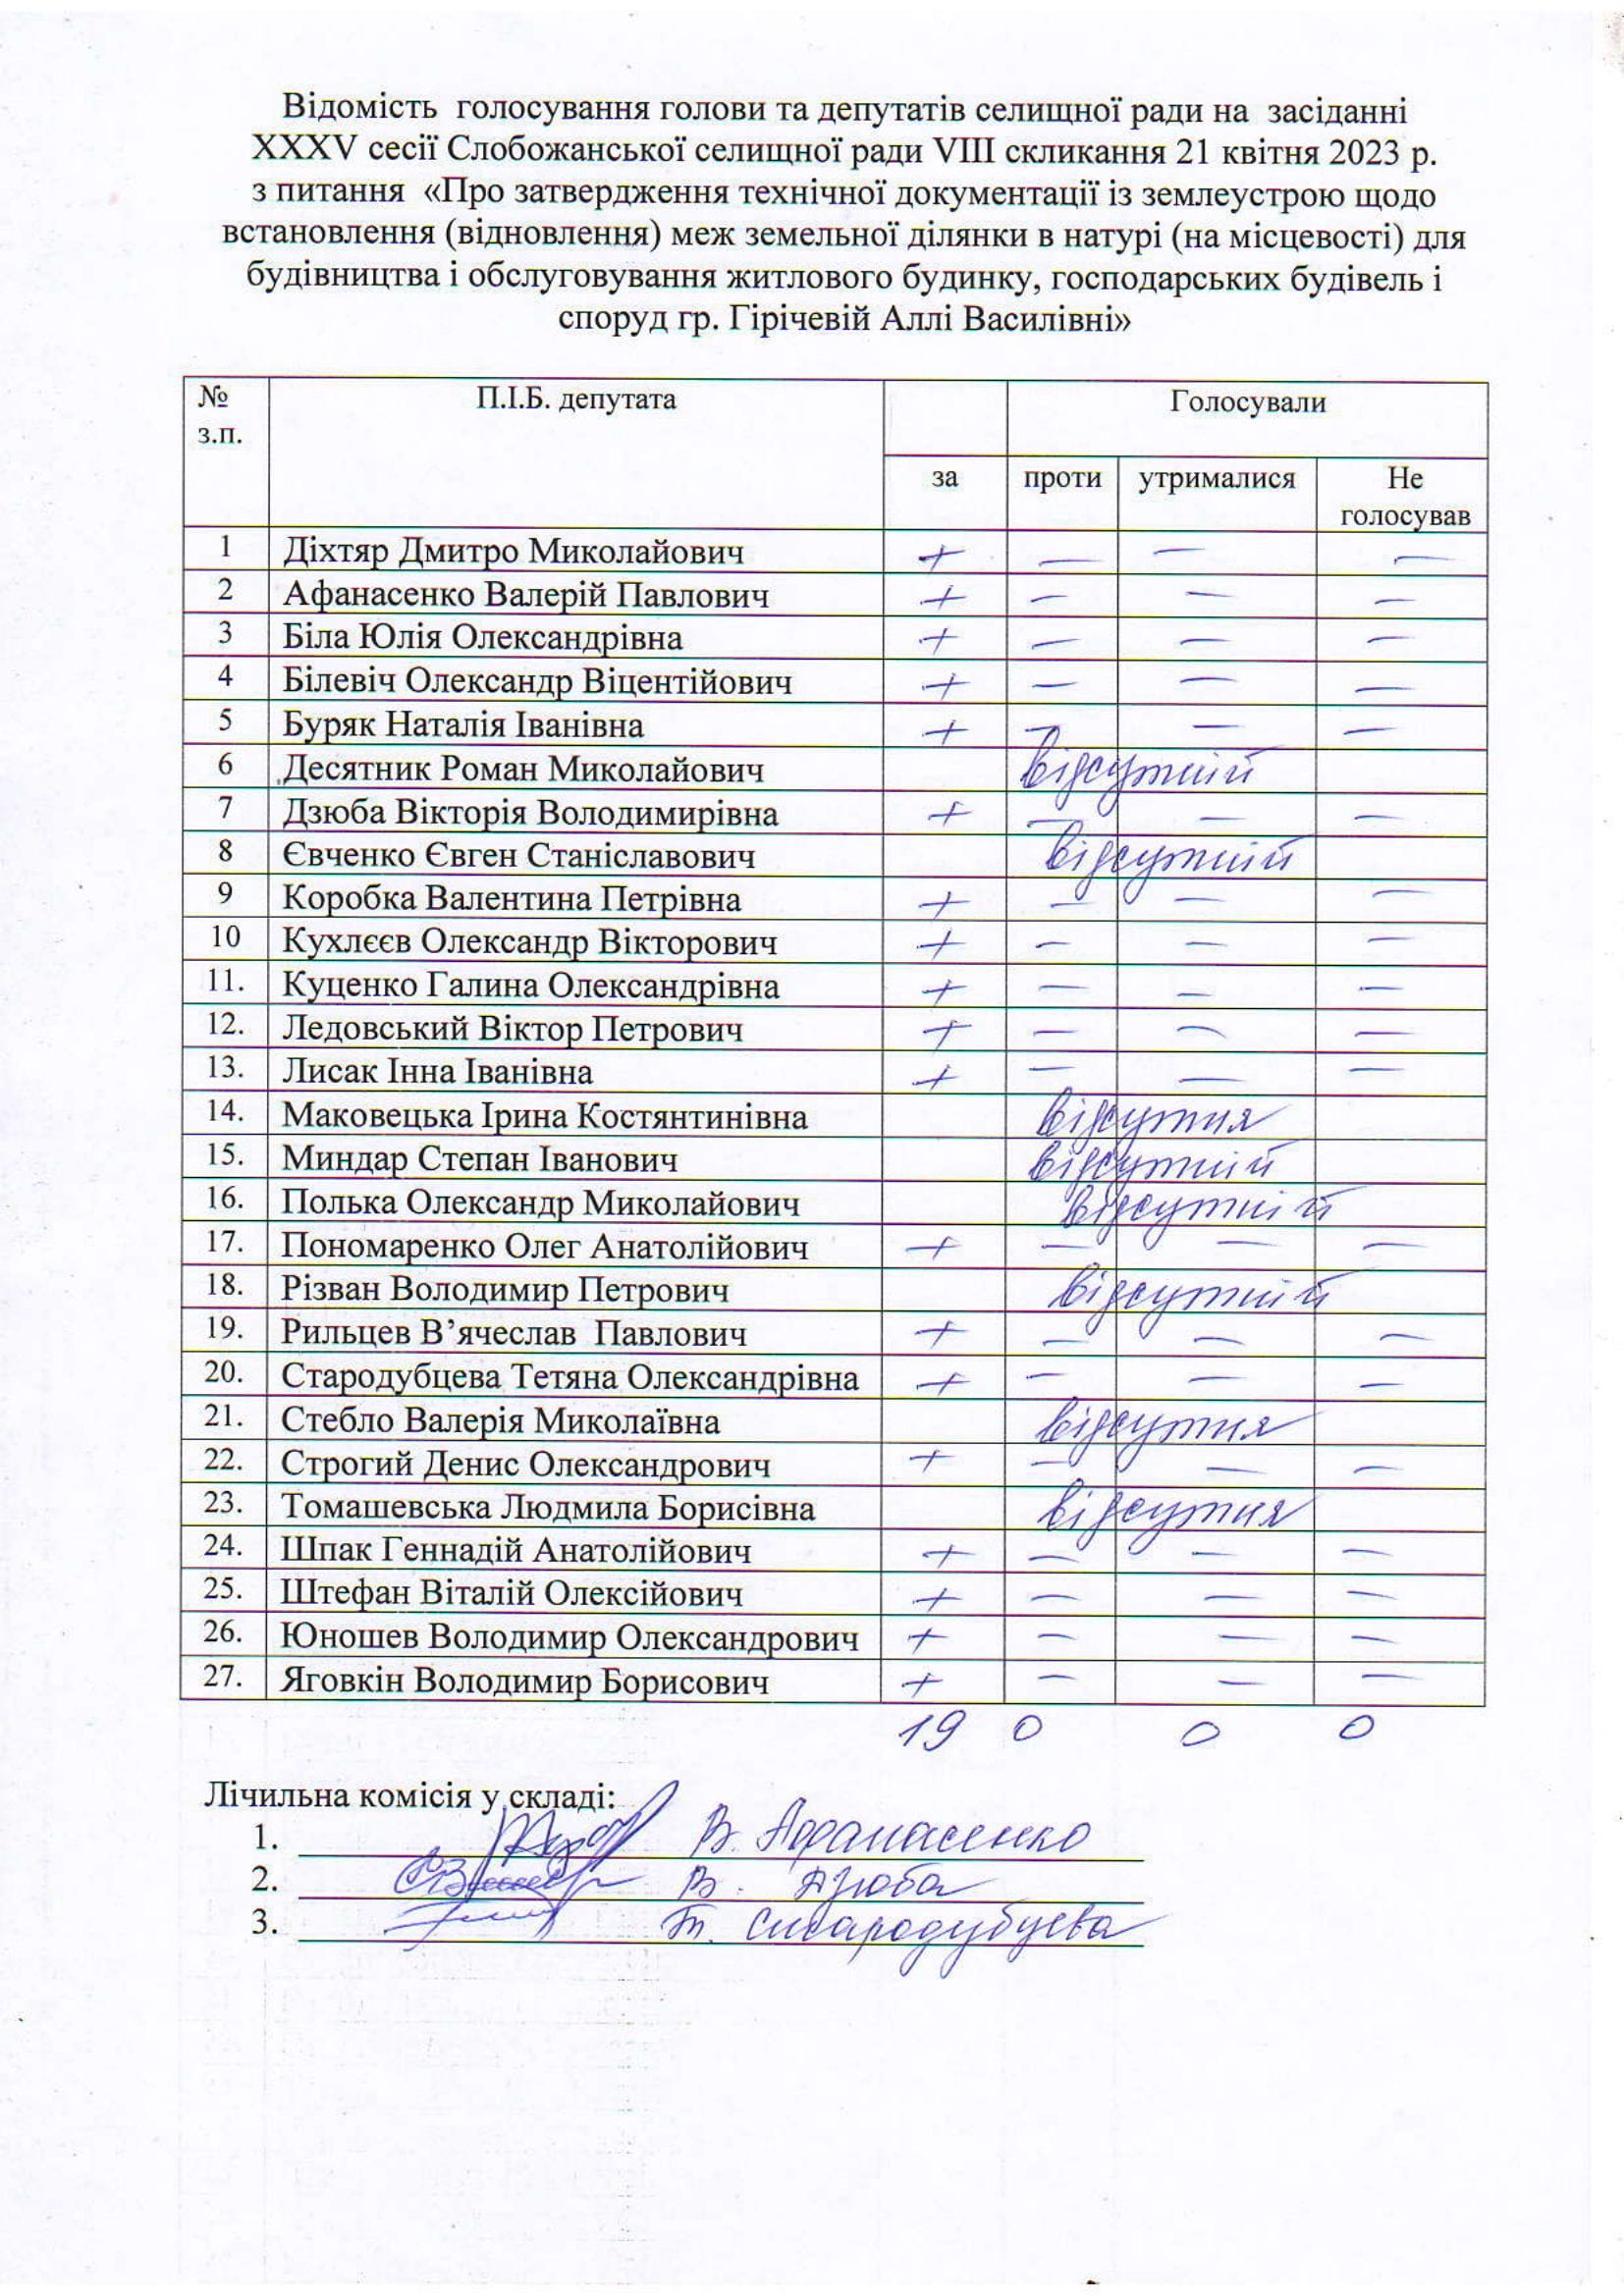 Відомість голосування голови та депутатів селищної ради на засіданні
XXXV сесії Слобожанської селищної ради VIII скликання 21 квітня 2023 р.
з питання «Про затвердження технічної документації із землеустрою щодо
встановлення (відновлення) меж земельної ділянки в натурі (на місцевості) для
будівництва і обслуговування житлового будинку, господарських будівель і
споруд гр. Гірічевій Аллі Василівні»
№ з.п. П.І.Б. депутата Голосували
за проти утрималися Не голосував
1 Діхтяр Дмитро Миколайович + — — —
2 Афанасенко Валерій Павлович + — — —
3 Біла Юлія Олександрівна + — — —
4 Білевіч Олександр Віцентійович + — — —
5 Буряк Наталія Іванівна + — — —
6 Десятник Роман Миколайович відсутній
7 Дзюба Вікторія Володимирівна + — — —
8 Євченко Євген Станіславович відсутній
9 Коробка Валентина Петрівна + — — —
10 Кухлєєв Олександр Вікторович + — — —
11. Куценко Галина Олександрівна + — — —
12. Ледовський Віктор Петрович + — — —
13. Лисак Інна Іванівна + — — —
14. Маковецька Ірина Костянтинівна відсутня
15. Миндар Степан Іванович відсутній
16. Полька Олександр Миколайович відсутній
17. Пономаренко Олег Анатолійович + — — —
18. Різван Володимир Петрович відсутній
19. Рильцев В’ячеслав Павлович + — — —
20. Стародубцева Тетяна Олександрівна + — — —
21. Стебло Валерія Миколаївна відсутня
22. Строгий Денис Олександрович + — — —
23. Томашевська Людмила Борисівна відсутня
24. Шпак Геннадій Анатолійович + — — —
25. Штефан Віталій Олексійович + — — —
26. Юношев Володимир Олександрович + — — —
27. Яговкін Володимир Борисович + — — —
19 0 0 0
Лічильна комісія у складі:
1. В. Афанасенко
2. В. Дзюба
3. Т. Стародубцева